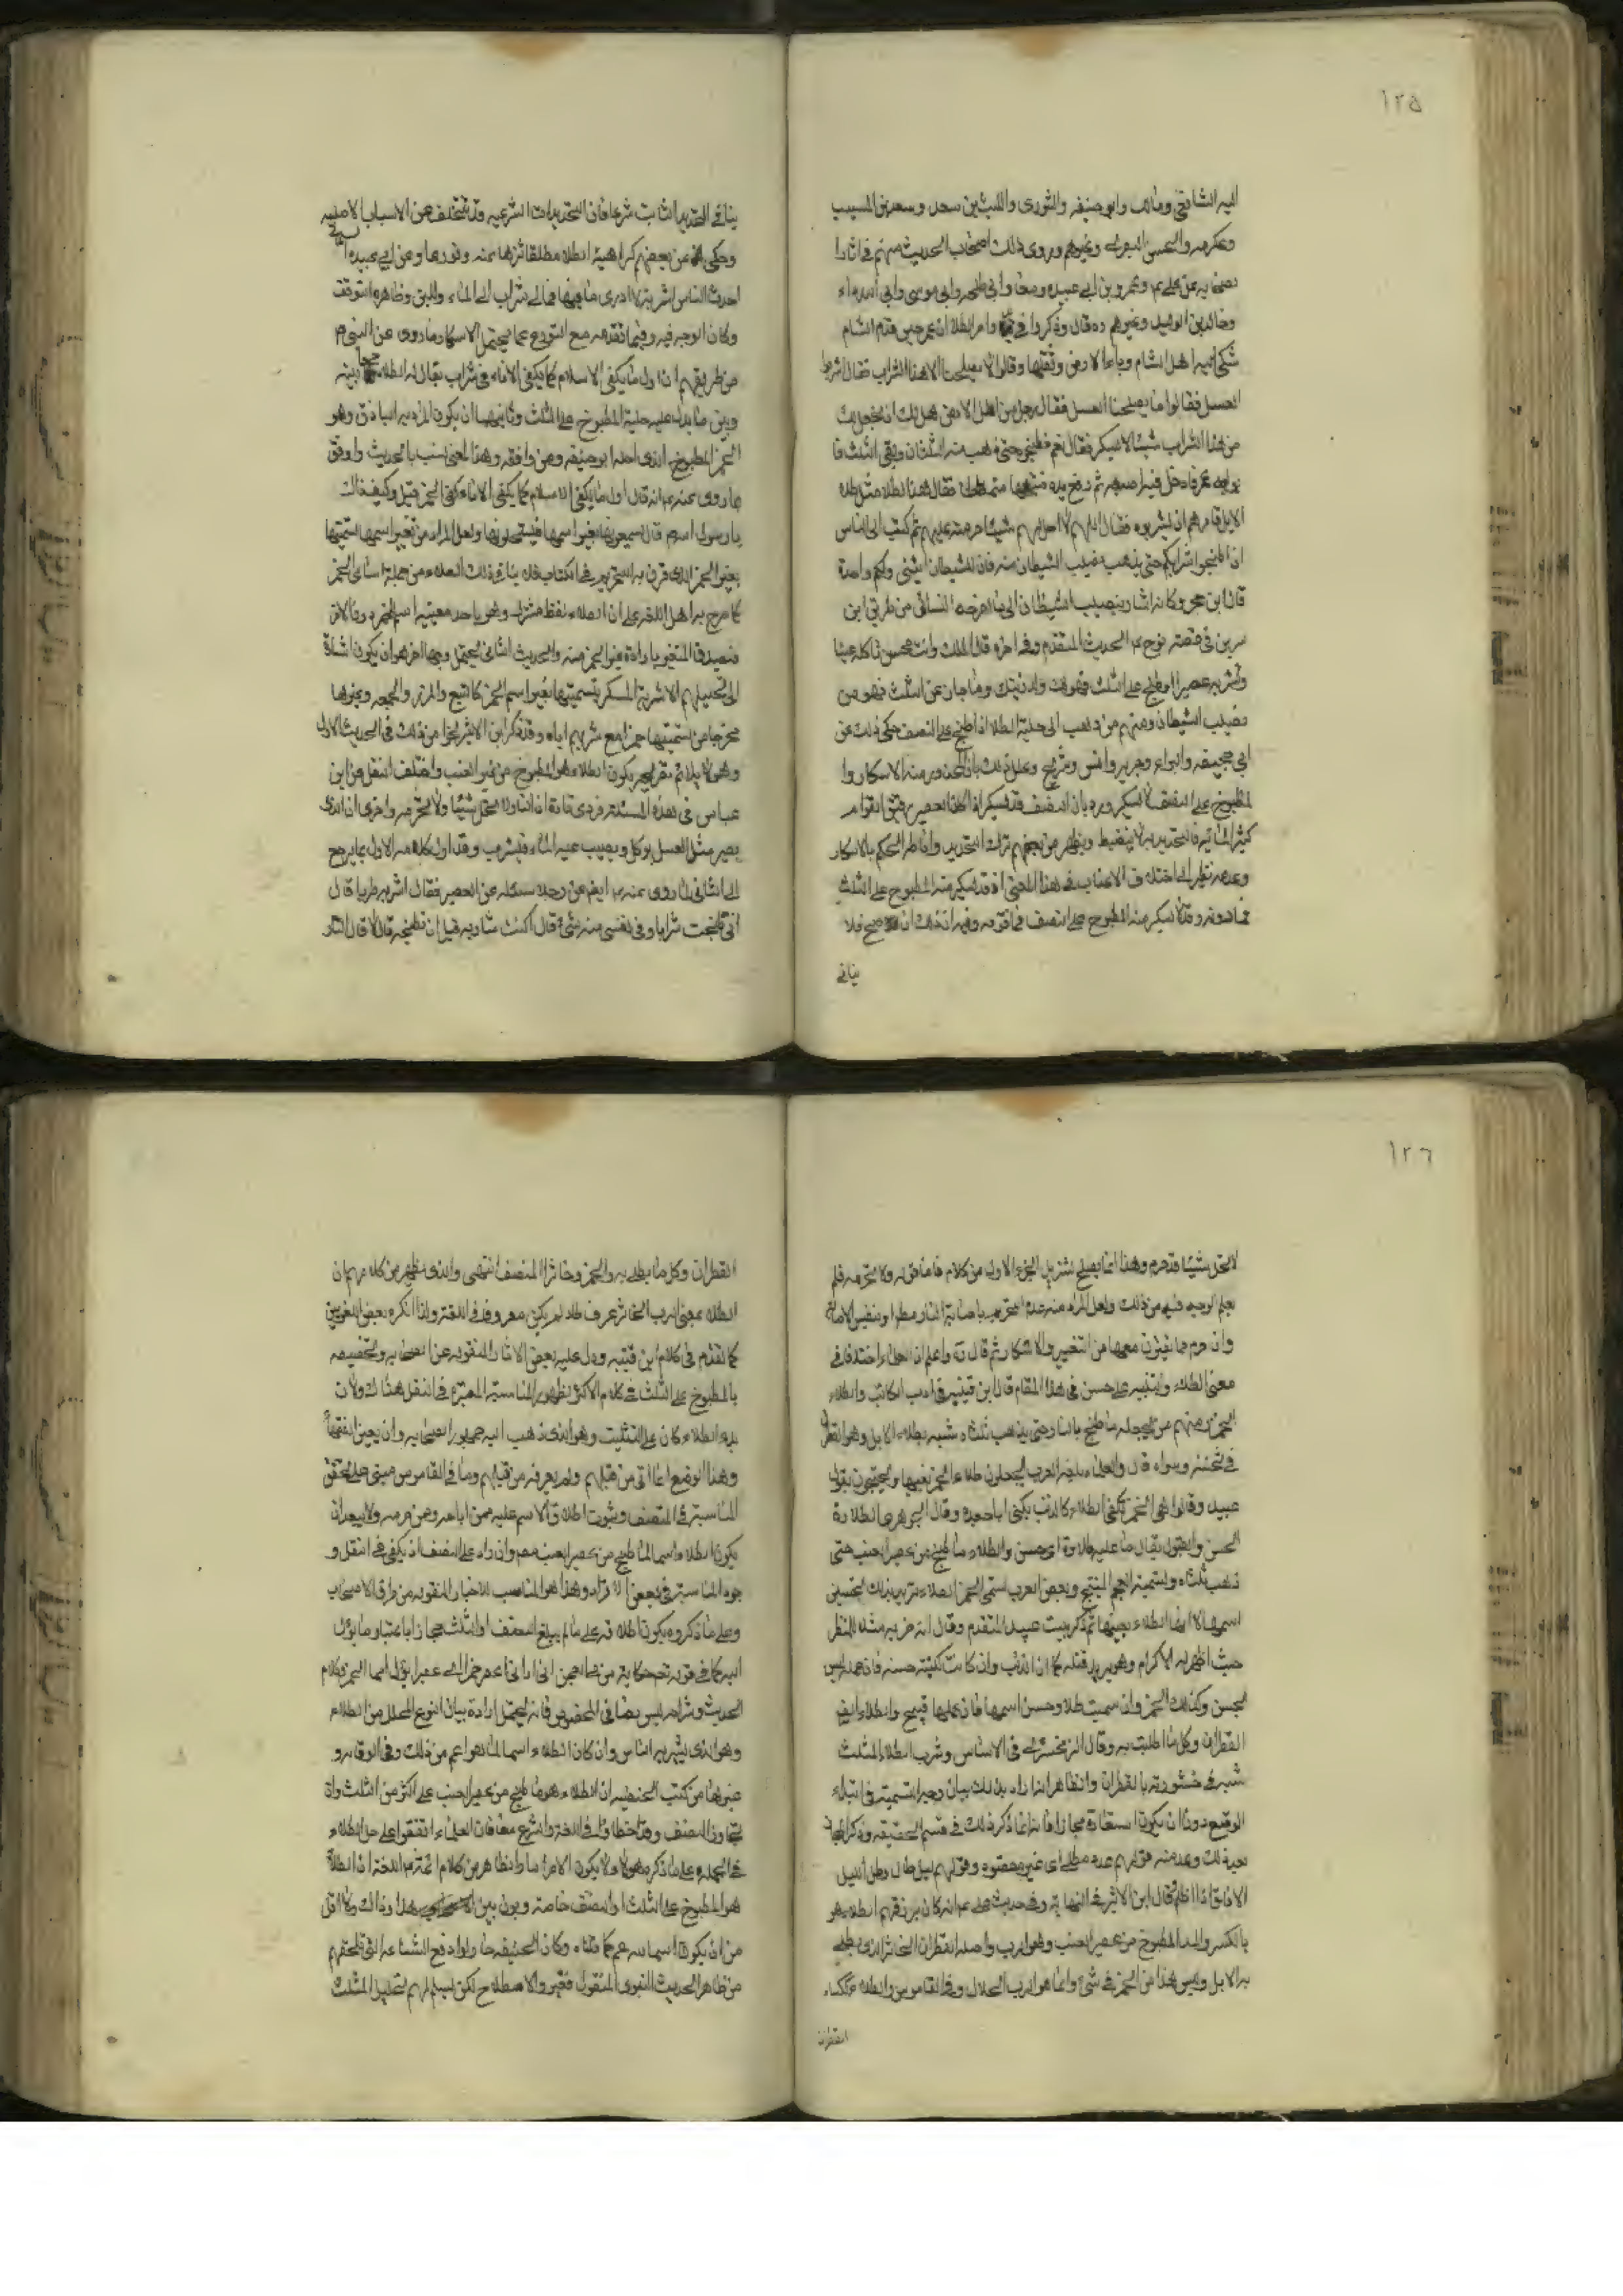 ١٢٥
اليه الشافعي ومالك وابو حنيفه والثوري والليث بن سعد وسعيد بن المسيب
وعكرمه والحسن البصري وغيرهم وروى ذلك اصحاب الحديث منهم في اثار
عن علي وعمر وبن ابي عبيده ومعاذ وابي طلحه وابي موسى وابي الدرداء
وخالد بن الوليد وغيرهم قال وذكروا في امر الطلا ان عمر حين قدم الشام
شكى اليه اهل الشام وباء الارض وثقلها وقالوا لا يصلحنا الا هذا الشراب فقال اشربوا
العسل فقالوا ما يصلحنا العسل فقال رجل من اهل الارض هل لك ان نجعل لك
من هذا الشراب شيئا لا يسكر فقال نعم فطبخوه حتى ذهب منه الثلثان وبقي الثلث فا
به عمر فادخل فيه اصبعه ثم رفع يده فقال هذا الطلا مثل طلاء
الابل فامرهم ان يشربوه فقال اللهم لا احل لهم شيئا حرمته عليهم ثم كتب الى الناس
ان اطبخوا شرابكم حتى يذهب نصيب الشيطان منه فان للشيطان اثنين ولكم واحدة
قال ابن حجر وكانه اشار بنصيب الشيطان الى ما اخرجه النسائي من طريق ابن
سيرين في قصة نوح الحديث المتقدم وفي اخره قال الملك وانت محسن تاكله عنبا
وتشربه عصيرا وطبخ على الثلث فهو لك ولذريتك وما جاز عن الثلث فهو من
نصيب الشيطان ومنهم من ذهب الى حلية الطلا اذا طبخ على النصف حكي ذلك عن
ابي جحيفه والبراء وجرير وانس وشريح وعلل ذلك بان المحذور منه الاسكار وا
لمطبوخ على النصف لا يسكر ورد بان المنصف قد يسكر اذا كان العصير رقيق القوام
كثير المائية فالتحديد به لا ينضبط ويظهر من بعضهم ترك التحديد واناطة الحكم بالاسكار
وعدمه نظرا الى اختلاف الاعناب في هذا المعنى اذ قد يسكر منه المطبوخ على الثلث
فما دونه وقد لا يسكر منه المطبوخ على النصف فما فوقه وفيه ان ذلك ان صح فلا
ينافي
ينافي التحديد الثابت شرعا فان التحديدات الشرعيه قد تتخلف عن الاسباب الاصليه
وحكي عن بعضهم كراهية الطلاء مطلقا تنزها عنه وتورعا وعن ابي عبيده
احدث الناس اشربة لا ادري ما فيها فمالي شراب الا الماء واللبن وظاهره التوقف
وكان الوجه فيه وفيما تقدمه مع التورع عما يحتمل الاسكار ما روي عن النبي
من طريقهم ان اول ما يكفى الاسلام كما يكفى الاناء في شراب يقال له الطلا بينه
وبين ما يدل عليه حلية المطبوخ على الثلث وثانيهما ان يكون المراد به الباذق وهو
الخمر المطبوخ الذي احله ابو حنيفه ومن وافقه وهذا المعنى انسب بالحديث واوفق
ما روي عنه انه قال اول ما يكفى الاسلام كما يكفى الاناء كفى الخمر قيل وكيف ذلك
يا رسول الله قال يسمونها بغير اسمها فيستحلونها ولعل المراد من تغيير اسمها تسميتها
بغير الخمر الذي قرن به التحريم في الكتاب فلا ينافي ذلك الطلاء من جملة اسماء الخمر
كما صرح به اهل اللغه على ان الطلاء لفظ مشترك وهو باحد معنييه اسم الخمر دون الاخر
فيصدق التغيير بارادة غير الخمر منه والحديث الثاني يحتمل وجها اخر هو ان يكون اشارة
الى تحليلهم الاشربة المسكره بتسميتها بغير اسم الخمر كالبتع والمزر والجعه وغيرها
تحرجا من تسميتها خمرا مع شربهم اياه وقد ذكر ابن الاثير نحوا من ذلك في الحديث الاول
وهو لا يلائم تفسير بكون الطلاء هو المطبوخ من غير العنب واختلف النقل عن ابن
عباس في هذه المسئله فروي تارة ان النار لا تحل شيئا ولا تحرمه واخرى ان الذي
يصير مثل العسل يوكل ويصب عليه الماء فيشرب وقد اول كلامه الاول بما يرجع
الى الثاني لما روي عنه ايضا من رجلا سئله عن العصير فقال اشربه طريا قال
اني طبخت شرابا وفي نفسي منه شئ قال اكنت شاربه قبل ان تطبخه قال لا قال النار
١٢٦
لا تحل شيئا قد حرم وهذا انما يصلح تنزيل الجزء الاول من كلام فاما قوله ولا تحرمه فلم
يعلم الوجه فيه من ذلك ولعل المراد منه عدم التحريم باصابة النار مطلقا وبنفس الاصابة
وان حرم بما يقترن معها من التغيير والاسكار ثم قال واعلم ان العلماء اختلفوا في
معنى الطلاء والتنبيه على حسن في هذا المقام قال ابن قتيبه في ادب الكاتب والطلاء
الخمر ومنهم من يجعله ما طبخ بالنار حتى يذهب ثلثاه شبه بطلاء الابل وهو القطران
في تخنه وسواده قال والعلماء بلغة العرب يجعلون طلاء الخمر بعينها ويحتجون بقول
عبيد وقالوا هي الخمر تكنى الطلاء كالذئب يكنى ابا جعده وقال الجوهري الطلاوة
الحسن والقبول يقال ما عليه طلاوة اي حسن والطلاء ما طبخ من عصير العنب حتى
ذهب ثلثاه وتسميه العجم الميبختج وبعض العرب تسمي الخمر الطلاء يريد بذلك تحسين
اسمها لا انها الطلاء بعينها ثم ذكر بيت عبيد المتقدم وقال انه ضربه مثلا للمنذر
حيث اظهر له الاكرام وهو يريد قتله كما ان الذئب وان كانت كنيته حسنه فان عمله ليس
بحسن وكذلك الخمر وان سميت طلا وحسن اسمها فان عملها قبيح والطلاء ايضا
القطران وكل ما اطليت به وقال الزمخشري في الاساس وشرب الطلاء المثلث
شبه في خثورته بالقطران والظاهر انه اراد بذلك بيان وجه التسميه في ابتداء
الوضع دون ان يكون استعارة مجازا فانه انما ذكر ذلك في قسم الحقيقه وذكر المجاز
بعد ذلك وعد منه قولهم عدو مطلى اي غير محصور وقولهم ليل طال وطلى الليل
الافاق اذا اظلم وقال ابن الاثير في النهاية وفي حديث علي انه كان يرزقهم الطلاء هو
بالكسر والمد المطبوخ من عصير العنب وهو الرب واصله القطران الخاثر الذي يطلى
به الابل وليس هذا من الخمر في شئ وانما هو الرب الحلال وفي القاموس والطلاء ككساء
القطران
القطران وكل ما يطلى به والخمر وخاثر المنصف انتهى والذي يظهر من كلامهم ان
الطلاء بمعنى الرب الخاثر عرف طار لم يكن معروفا في اللغة ولذا انكره بعض اللغويين
كما تقدم في كلام ابن قتيبه ودل عليه بعض الاثار المنقوله عن الصحابه وتخصيصه
بالمطبوخ على الثلث في كلام الاكثر لظهور المناسبة المعتبره في النقل هناك ولان
بدء الطلاء كان على التثليث وهو الذي ذهب اليه جمهور الصحابه وان يعين الفقهاء
وهذا الوضع انما اتى من قبلهم ولم يعرف من قبلهم وما في القاموس مبنى على تحقق
المناسبة في المنصف وثبوت اطلاق الاسم عليه ممن اباحه ومن حرمه ولا يبعد ان
يكون الطلاء اسما لما طبخ من عصير العنب وان زاد على النصف اذ يكفي في النقل و
جود المناسبة في بعض الافراد وهذا هو المناسب للاخبار المنقوله من طرق الاصحاب
وعلى ما ذكروه يكون اطلاقه على ما لم يبلغ النصف او الثلث مجازا باعتبار ما يؤل
اليه كما في قوله تع حكاية من صاحبي السجن اني اراني اعصر خمرا اي عصيرا يؤل الى الخمر وكلام
الحديث وشرابه ليس نصا في الخصوص فانه يحتمل ارادة بيان النوع المحلل من الطلاء
وهو الذي يشربه الناس وان كان الطلاء اسما لما هو اعم من ذلك وفي الوقايه و
غيرها من كتب الحنفيه ان الطلاء هو ما طبخ من عصير العنب على اكثر من الثلث وان
تجاوز النصف وهذا خطا في اللغة والشرع معا فان العلماء اتفقوا على حل الطلاء
في الجمله وعلى ما ذكره هؤلاء لا يكون الا حراما والظاهر من كلام ائمة اللغة ان الطلا
هو المطبوخ على الثلث او النصف خاصة وبون بين هذا وذاك ولا اقل
من ان يكون اسما عم كما قلناه وكان الحنيفه حاولوا دفع الشناعه التي تلحقهم
من ظاهر الحديث النبوي المنقول فغيروا الاصطلاح لكن ليسلم لهم تحليل المثلث